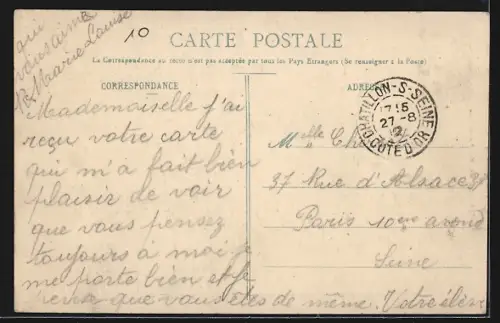 qui
vous aime
Marie Louise
10
CARTE POSTALE
La Correspondance au recto n'est pas acceptée par tous les Pays Etrangers (Se renseigner à la Poste)
CORRESPONDANCE
Mademoiselle j'ai
reçu votre carte
qui m'a fait bien
plaisir de voir
que vous pensez
toujours a moi je
me porte bien et je
pense que vous êtes de même. Votre élève
CHATILLON-S-SEINE
17 15
27-8
COTE D'OR
Melle
37 Rue d'Alsace 37
Paris 10eme
Seine